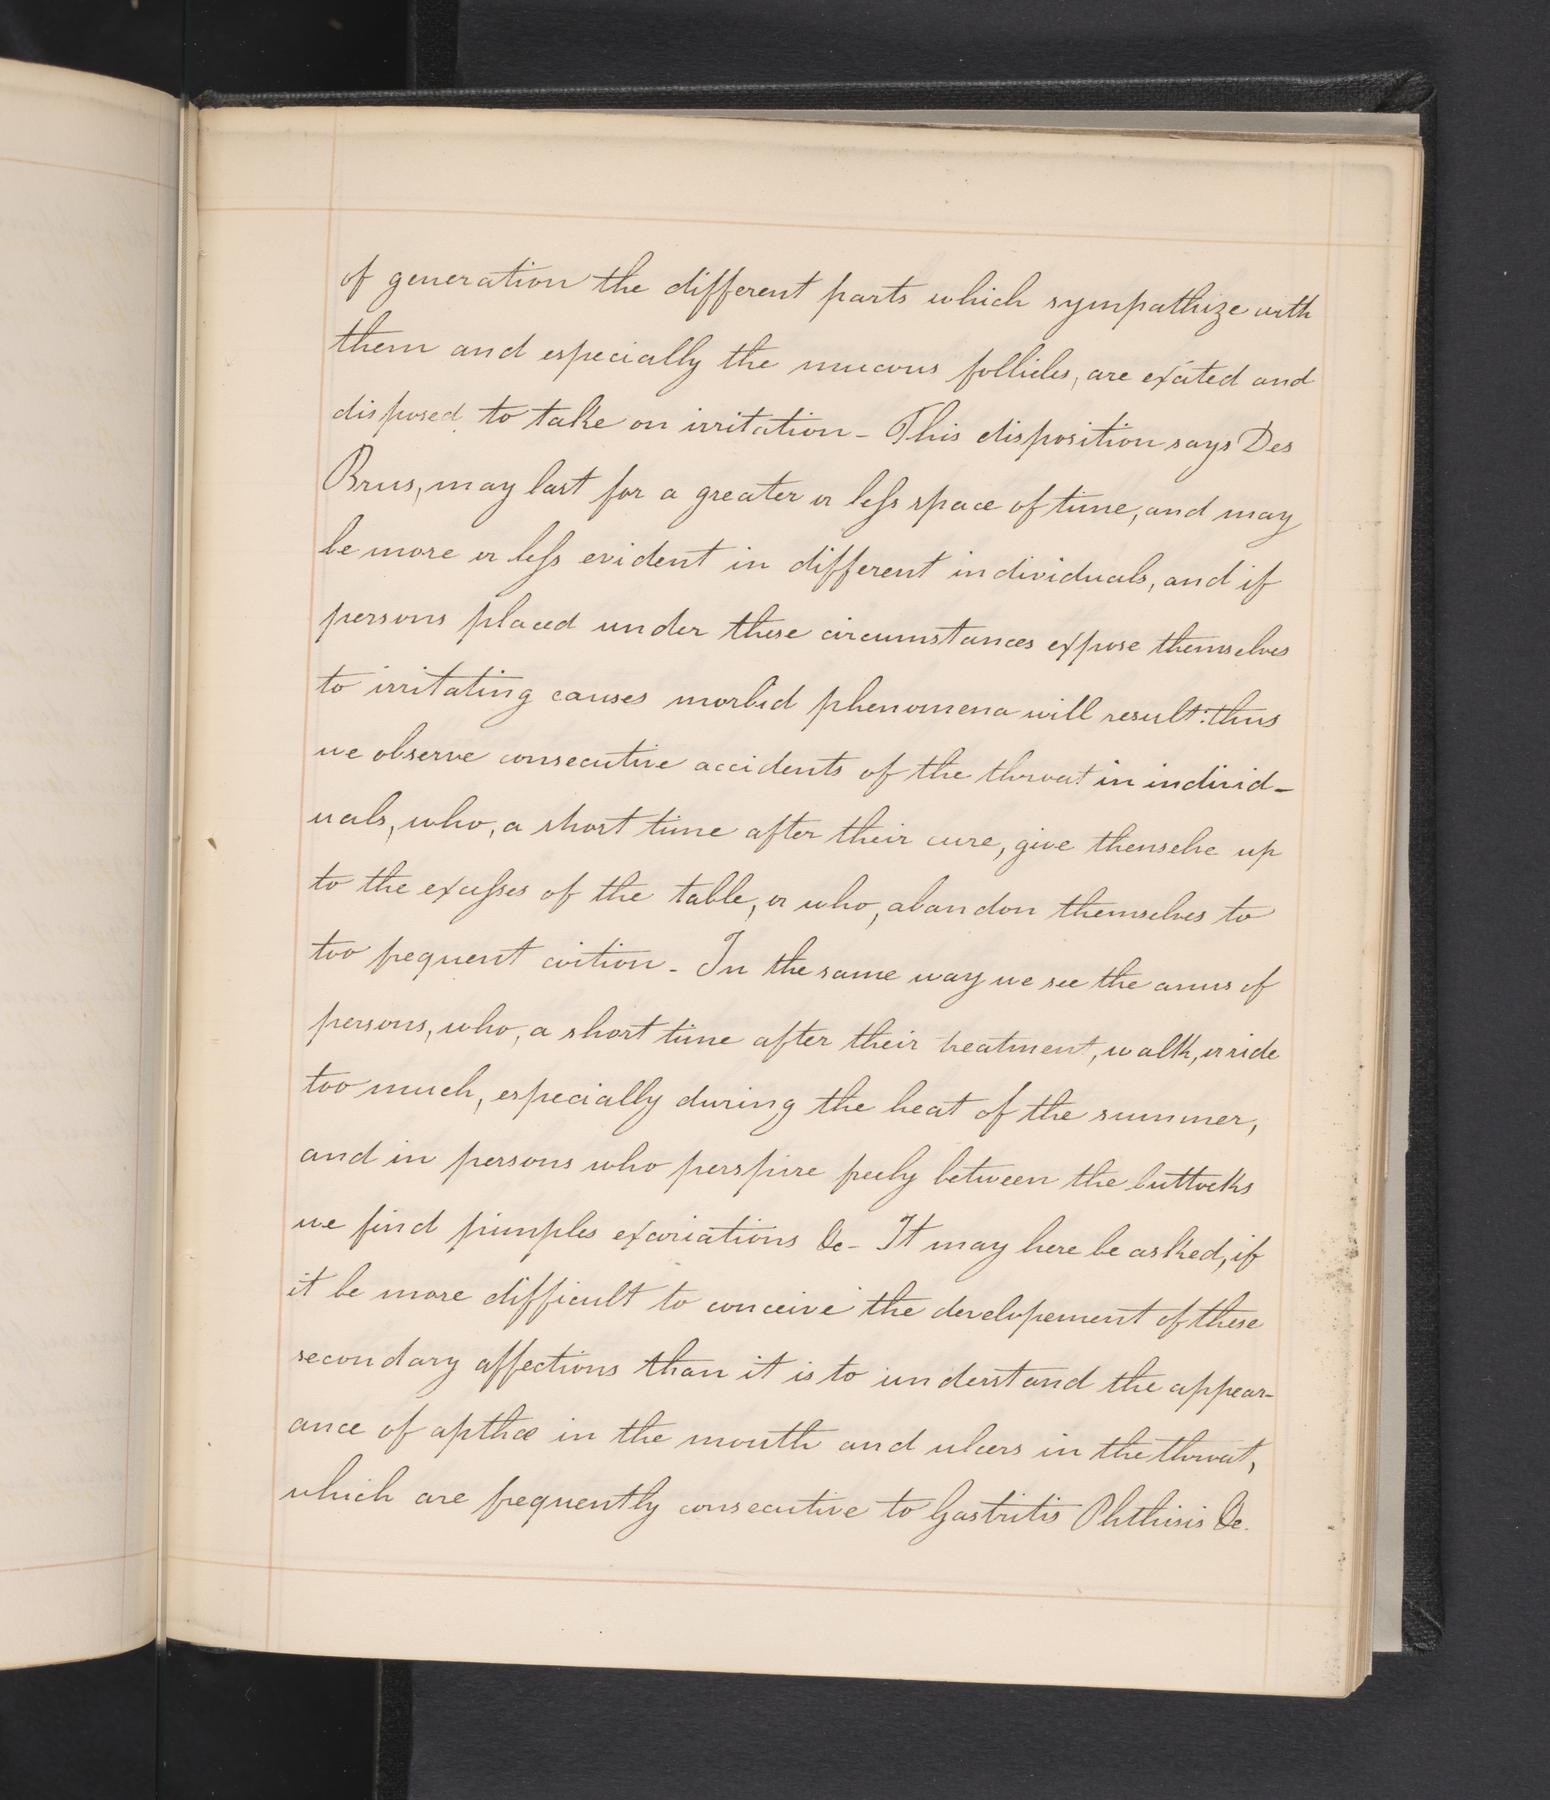 of generation the different parts which sympathize with
them and especially the mucous follicles, are exited and
disposed to take on irritation - This disposition says Des
Brus, may last for a greater or less space of time, and may
be more or less evident in different individuals, and if
persons placed under these circumstances expose themselves
to irritating causes morbid phenomena will result: thus
we observe consecutive accidents of the throat in individ-
uals, who, a short time after their cure, give themselve up
to the excesses of the table, or who, abandon themselves to
too frequent coition - In the same way we see the anus of
persons, who, a short time after their treatment, walk, or ride
too much, especially during the heat of the summer,
and in persons who perspire freely between the buttocks
we find pimples excoriations &c - It may here be asked, if
it be more difficult to conceive the developement of these
secondary affections than it is to understand the appear-
ance of apthæ in the mouth and ulcers in the throat,
which are frequently consecutive to Gastritis Phthisis &c.